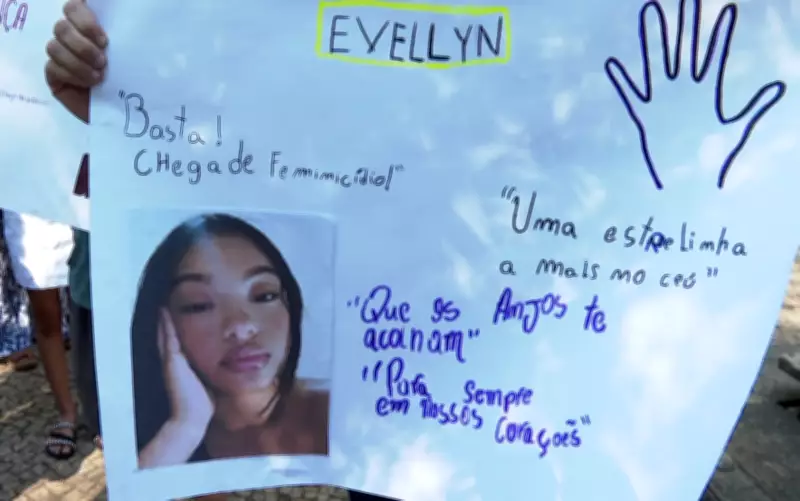 EVELLYN
"Basta!
CHega de Femimicídio!"
"Uma estrelinha
a mais mo ceú"
"Que os Anjos te
acanam"
"Para Sempre
em nossos Corações"